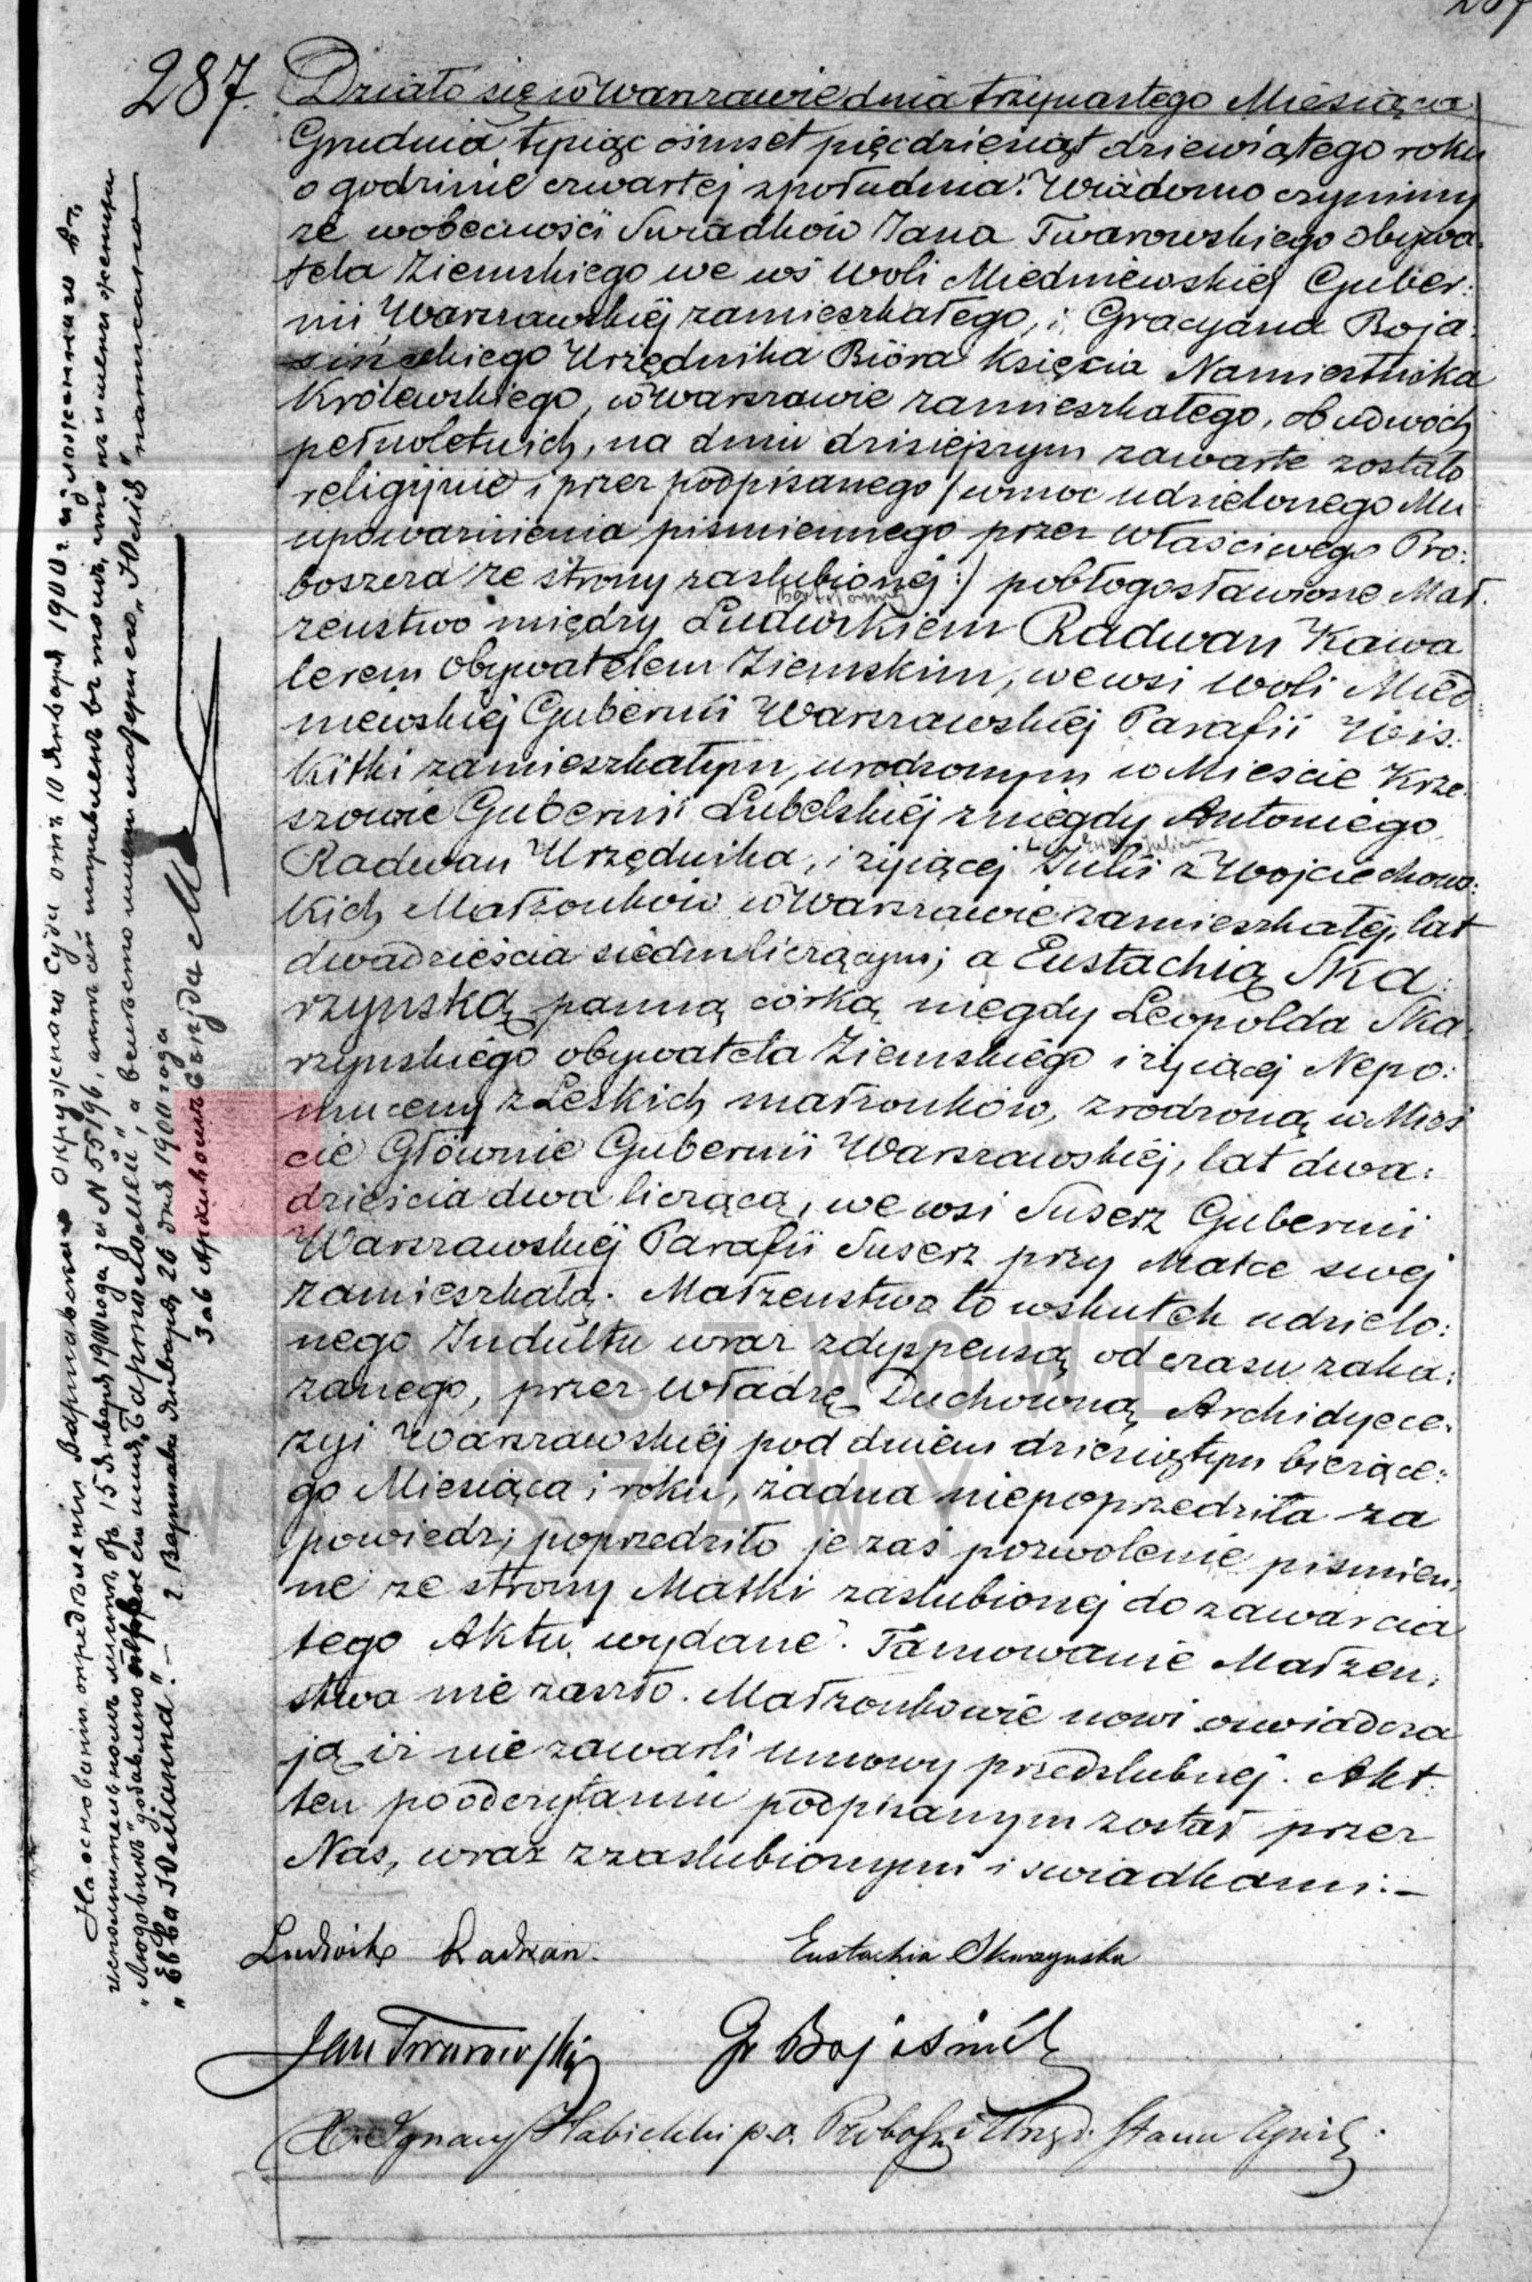 287.
Działo się w Warszawie dnia trzynastego Miesiąca
Grudnia tysiąc ośmset pięćdziesiąt dziewiątego roku
o godzinie czwartej z południa. Wiadomo czynimy
że w obecności Swiadków Jana Twarowskiego Obywa-
tela Ziemskiego we wsi Woli Miedniewskiej Guber:
nii Warszawskiej zamieszkałego, i Gracyana Boja:
sińskiego Urzędnika Bióra Księcia Namiestnika
Królewskiego, w Warszawie zamieszkałego, obudwóch
pełnoletnich, na dniu dzisiejszym zawarte zostało
religijnie i przez podpisanego /: w moc udzielonego Mu
upoważnienia piśmiennego przez właściwego Pro:
boszcza ze strony zaślubionej :/ pobłogosławione Mał:
żeństwo między Ludwikiem Radwan Kawa
lerem Obywatelem Ziemskim, we wsi Woli Mied:
niewskiej Gubernii Warszawskiej Parafii Wis:
kitki zamieszkałym, urodzonym w Mieście Krze:
szowie Gubernii Lubelskiej z niegdy Antoniego
Radwan Urzędnika, i żyjącej Julii z Wojciechows:
kich Małżonków w Warszawie zamieszkałej, lat
dwadzieścia siedm liczącym; a Eustachią Ska:
rzynską panną córką niegdy Leopolda Ska:
rzynskiego obywatela Ziemskiego i żyjącej Nepo:
muceny z Leskich małżonków, zrodzoną w Mieś
cie Głównie Gubernii Warszawskiej, lat dwa:
dzieścia dwa liczącą, we wsi Suserz Gubernii
Warszawskiej Parafii Suserz przy Matce swej
zamieszkałą. Małżeństwo to wskutek udzielo:
nego Indultu wraz z dyspensą od czasu zaka:
zanego, przez Władzę Duchowną Archidyece:
zyi Warszawskiej pod dniem dziesiątym bieżące:
go Miesiąca i roku, żadna niepoprzedziła za
powiedź; poprzedziło je zaś pozwolenie piśmien:
ne ze strony Matki zaślubionej do zawarcia
tego Aktu wydane. Tamowanie Małżeń:
stwa nie zaszło. Małżonkowie nowi oswiadcza
ją iż nie zawarli umowy przedślubnej. Akt
ten po odczytaniu podpisanym został przez
Nas, wraz z zaślubionymi i swiadkami:—
Ludwik Radwan.
Eustachia Skarzynska
Jan Twarowski
Gr Bojasiński
X. Ignacy
На основаніи опредѣленія Варшавскаго Окружнаго Суда отъ 10 Января 1900 г. изложеннаго въ
исполнительномъ листѣ отъ 15 Января 1900 года за № 5596, актъ сей исправленъ въ томъ, что къ имени жениха
„Людовикъ" добавлено первое имя „Бартоломей", а вмѣсто имени матери его „Юлія" написано
„Евва Юліанна".— г. Варшава Января 26 дня 1900 года
PAŃSTWOWE
WARSZAWY